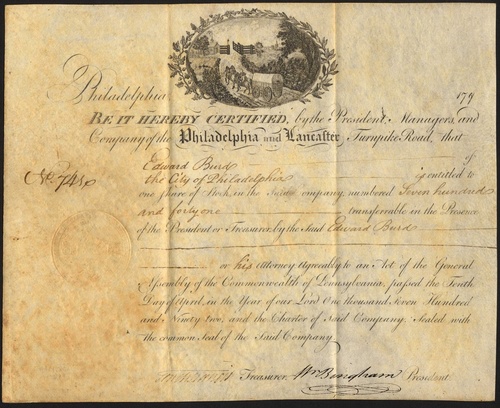 Philadelphia 179
BE IT HEREBY CERTIFIED, by the President, Managers, and
Company of the Philadelphia and Lancaster Turnpike Road, that
Edward Burd of
the City of Philadelphia is entitled to
No. 741 one Share of Stock in the Said Company, numbered Seven hundred
and forty one transferrable in the Presence
of the President or Treasurer, by the Said Edward Burd
or his Attorney Agreeably to an Act of the General
Assembly of the Commonwealth of Pennsylvania, passed the Ninth
Day of April, in the Year of our Lord One thousand Seven Hundred
and Ninety two, and the Charter of Said Company, Sealed with
the common Seal of the Said Company.
Treasurer. Wm Bingham President